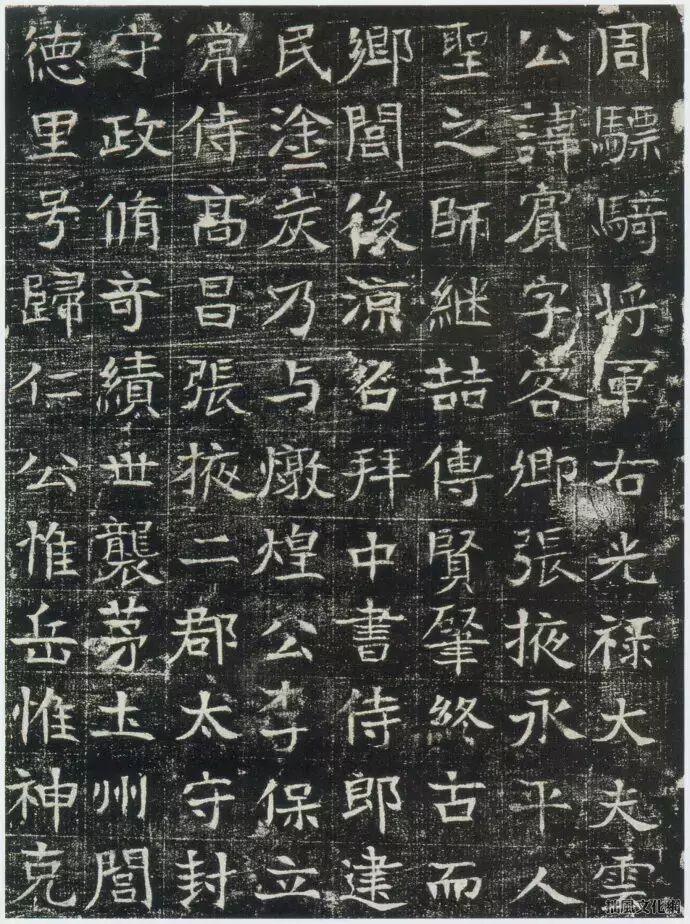 周驃騎將軍右光祿大夫雲
公諱賓字客卿張掖永平人
聖之師繼喆傳賢肇終古而
鄉閭後涼名拜中書侍郎建
民塗炭乃与燉煌公李保立
常侍高昌張掖二郡太守封
守政脩奇績世襲茅土州閭
德里号歸仁公惟岳惟神克